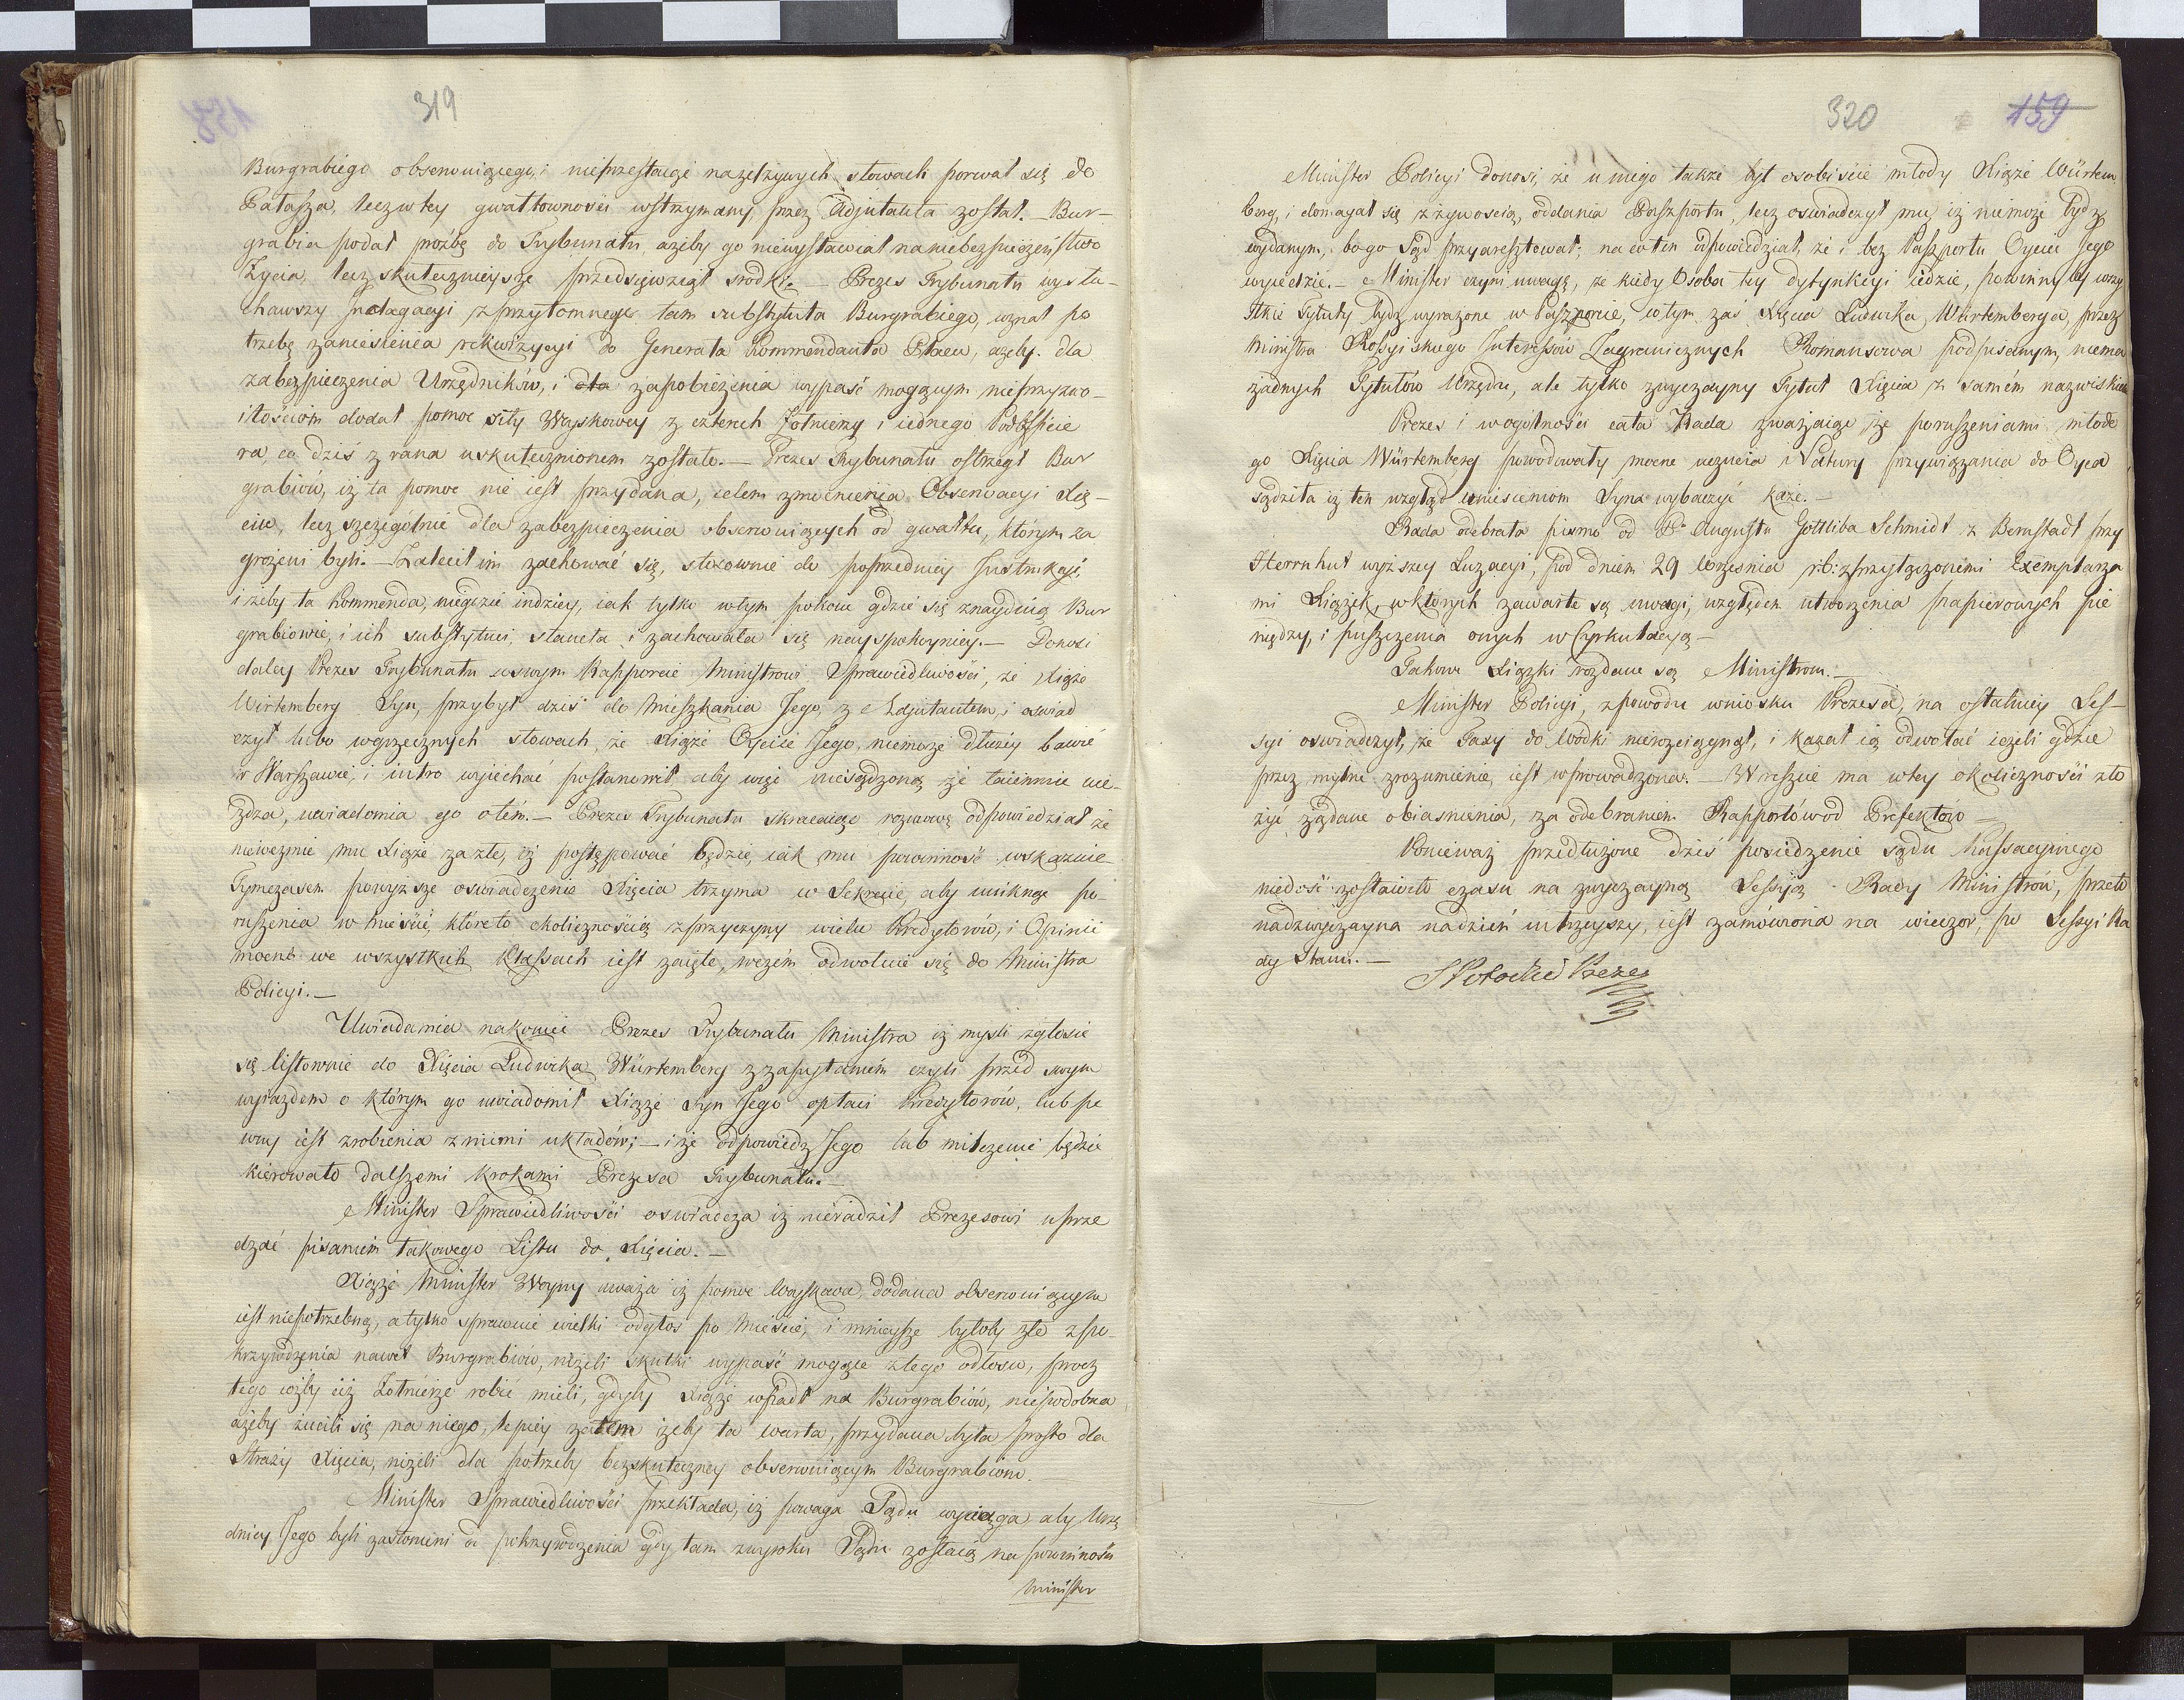 319
158
Burgrabiego obserwuiącego, i nieprzestaiąc na zelżywych słowach porwał się do
Pałasza, lecz w tey gwałtowności wstrzymany przez Adjutanta został. — Bur-
grabia podał proźbę do Trybunału, ażeby go niewystawiał na niebezpieczeństwo
Życia, lecz skutecznieysze przedsięwziął srodki. — Prezes Trybunału wysłu-
chawszy Indagacyi z przytomnego tam substytuta Burgrabiego, uznał po
trzebę zaniesienia rekwizycyi do Generała Kommendanta Placu, ażeby dla
zabezpieczenia Urzędników, i dla zapobieżenia wypaść mogącym nieprzyzwo-
itościom dodał pomoc siły Woyskowey z czterech Żołnierzy i iednego Podoffice
ra, co dziś z rana uskutecznionem zostało. — Prezes Trybunału ostrzegł Bur
grabiów, iż ta pomoc nie iest przydana, celem zmocnienia Obserwacyi Xię-
cia, lecz szczególnie dla zabezpieczenia obserwuiących od gwałtu, którym za
grożeni byli. — Zalecił im zachować się, stosownie do poprzedniey Instrukcyi,
i żeby ta Kommenda, niegdzie indziey, iak tylko w tym pokoiu gdzie się znayduią Bur
grabiowie, i ich substytuci, stanęła i zachowała się nayspokoyniey. — Donosi
daley Prezes Trybunału w swym Rapporcie Ministrowi Sprawiedliwości, że Xiąże
Wirtemberg Syn, przybył dziś do Mieszkania Jego, z Adjutantem, i oswiad
czył lubo w grzecznych słowach, że Xiąże Oyciec Jego, niemoże dłużey bawić
w Warszawie, i iutro wyiechać postanowił aby więc niesądzono, że taiemnie uie-
żdza, uwiadomia go o tém. — Prezes Trybunału skracaiąc rozmowę odpowiedział że
nieweźmie mu Xiąże za złe, iż postępować będzie, iak mu powinność wskazuie.
Tymczasem powyższe oswiadczenie Xięcia trzyma w Sekrecie, aby uniknąć po-
ruszenia w mieście, które to okolicznością z przyczyny wielu Kredytorów, i Opinii
mocno we wszystkich Klassach iest zaięte, w czém odwołuie się do Ministra
Policyi. —
Uwiadamia nakoniec Prezes Trybunału Ministra iż mysli zgłosic
się listownie do Xięcia Ludwika Würtemberg z zapytaniém czyli przed swym
wyiazdem o którym go uwiadomił Xiąże Syn Jego opłaci Kredytorów, lub pe
wny iest zrobienia z niemi układów; — i że odpowiedz Jego lub milczenie będzie
kierowało dalszemi krokami Prezesa Trybunału. —
Minister Sprawiedliwości oswiadcza iż nieradził Prezesowi uprze
dzać pisaniem takowego Listu do Xięcia. —
Xiąże Minister Woyny uważa iż pomoc Woyskowa, dodana obserwuiącym
iest niepotrzebną, a tylko sprawuie wielki odgłos po Mieście, i mnieysze byłoby złe z po-
krzywdzenia nawet Burgrabiów, niżeli skutki wypaść mogące z tego odłosu, procz
tego cóżby ciż Żołnierze robić mieli, gdyby Xiąże wpadł na Burgrabiów, niepodobna
ażeby rzucili się na niego, lepiéy zatem iżeby ta warta, przydana była prosto dla
Straży Xięcia, niżeli dla potrzeby bezskuteczney obserwuiącym Burgrabiom. —
Minister Sprawiedliwości przekłada, iż powaga Sądu wyciąga aby Urzę
dnicy Jego byli zasłonieni od pokrzywdzenia gdy tam z wyroku Sądu zostaią na powinności
Minister
320
159
Minister Policyi donosi, że u niego także był osobiście młody Xiąże Würtem
berg, i domagał się z żywością, oddania Paszportu, lecz oswiadczył mu, iż niemoże bydź
wydanym, bo go Sąd przyaresztował; na co ten odpowiedział, że i bez Paszportu Oyciec Jego
wyiedzie. — Minister czyni uwagę, że kiedy Osoba tey dystynkcyi iedzie, powinny by wszy
stkie Tytuły bydz wyrażone w Paszporcie, w tym zaś Xięcia Ludwika Würtemberga, przez
Ministra Rossyiskiego Interessów Zagranicznych Romansowa podpisanym, niema
żadnych Tytułów Urzędu, ale tylko zwyczayny Tytuł Xięcia z samém nazwiskiem
Prezes i wogólności cała Rada zważaiąc, że poruszeniami młode
go Xięcia Würtemberg powodowały mocne uczucia i Natury przywiązania do Oyca
sądziła iż ten wzgląd uniesieniom Syna wybaczyć każe. —
Rada odebrała pismo od Pa Augusta Gottliba Schmidt z Bernstadt przy
Herrnhut wyższey Luzacyi, pod dniem 29 Września r.b: z przyłączonemi Exemplarza
mi Xiążek, w których zawarte są uwagi, względem utworzenia papierowych pie
niędzy, i puszczenia onych w Cyrkulacyą —
Takowe Xiążki rozdane są Ministrom. —
Minister Policyi, z powodu wniosku Prezesa, na ostatniey Ses-
syi oswiadczył, że Taxy do Wódki nierozciągnął, i kazał ią odwołać ieżeli gdzie
przez mylne zrozumienie, iest wprowadzona. — W reszcie ma w tey okoliczności zło
żyć żądane obiasnienia, za odebraniem Rapportów od Prefektów —
Ponieważ przedłużone dziś posiedzenie sądu Kassacyinego
niedosć zostawiło czasu na zwyczayną Sessyą Rady Ministrów, przeto
nadzwyczayna nadzień iutrzeyszy, iest zamówiona na wieczor, po Sessyi Ra
dy Stanu. —
S Potocki Prezes